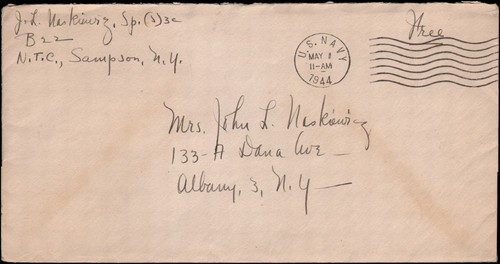 J. L. Naskiewiz, Sp. (S) 3c
B-22
N.T.C., Sampson, N.Y.
U.S. NAVY
MAY 1
11-AM
1944
Free
Mrs. John L. Naskiewicz
133-A Dana Ave
Albany, 3, N.Y.